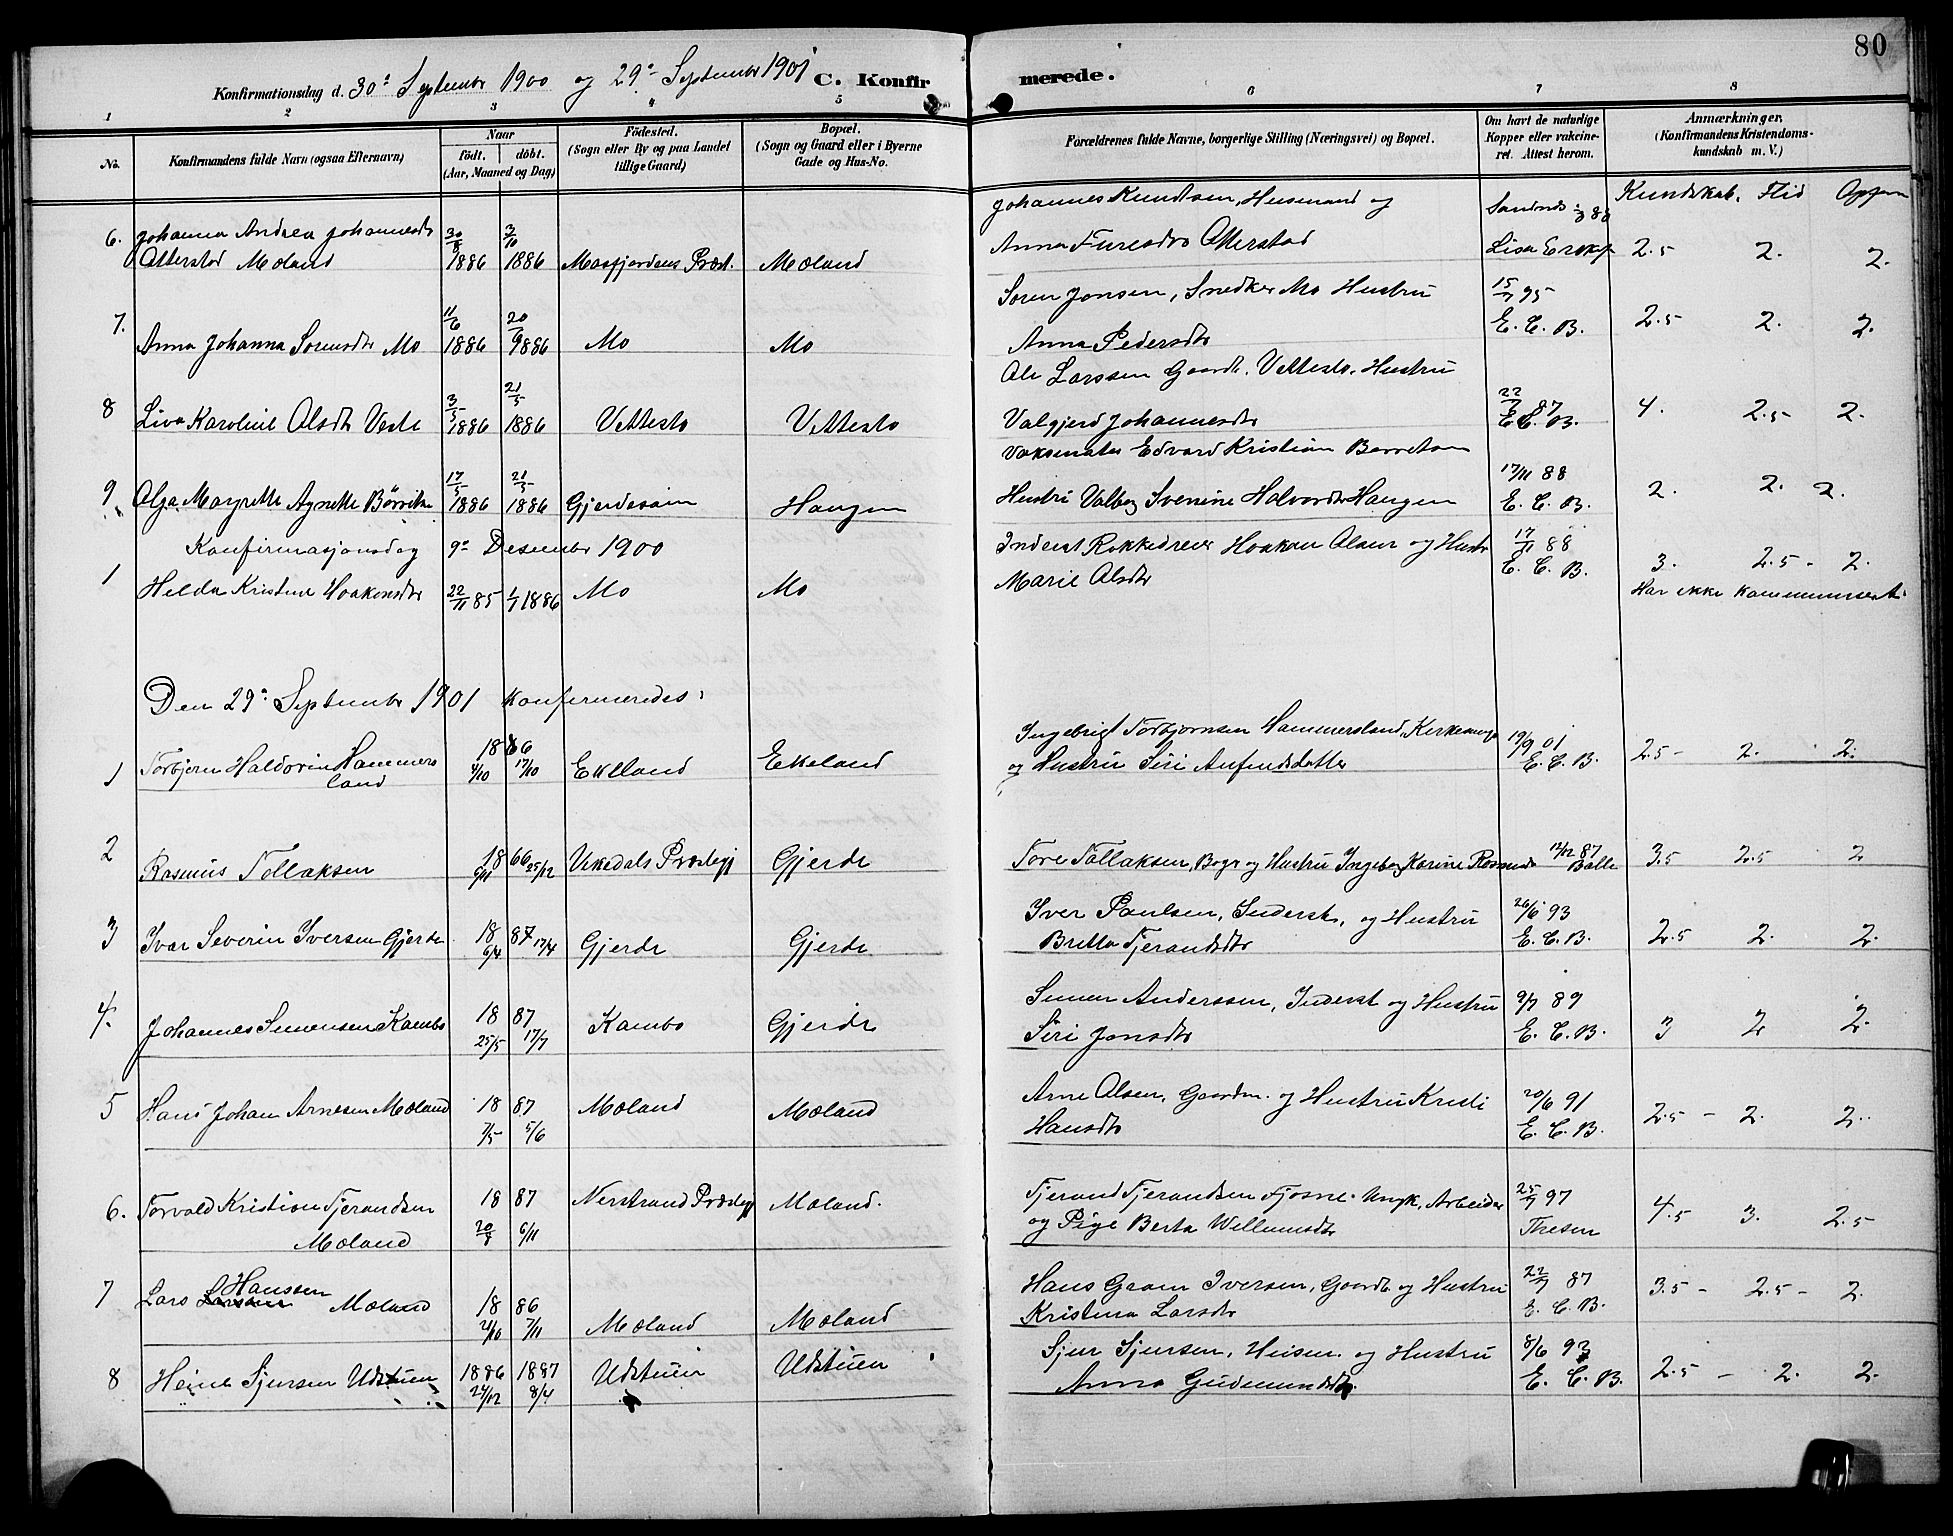 80
Konfirmationsdag d. 30te September 1900 og 29te September 1901 C. Konfirmerede.
1 2 3 4 5 6 7 8
No. Konfirmandens fulde Navn (ogsaa Efternavn) Naar født. døbt. (Aar, Maaned og Dag) Fødested. (Sogn eller By og paa Landet tillige Gaard) Bopæl. (Sogn og Gaard eller i Byerne Gade og Hus-No.) Forældrenes fulde Navne, borgerlige Stilling (Næringsvei) og Bopæl. Om havt de naturlige Kopper eller vakcineret. Attest herom. Anmærkninger. (Konfirmandens Kristendomskundskab m. V.)
Kundskab. Flid
Johannes Knudtsen, Husmand og
6. Johanna Andrea Johannesdtr 30/8 3/10 Anna Atterstad
Atterstad Moland 1886 1886 Moland 2.5 2. 2.
Soren Jonsen, Snedker Mo Hustru 15/7 95
7. Anna Johanna Sorensdtr Mo 11/6 1886 20/9 1886 Mo Mo Anna Pedersdtr E. C. B. 2.5 2. 2.
Ole Larssen Gaardb. Vettestø. Hustru
8 Karoline Olsdtr 3/5 1886 21/5 1886 Vettestø Vettestø Valgjerd Johannesdtr 22/7 87 E. C. B. 4. 2.5 2.
Edvard Kristian
9. Olga Margrethe Agnette 17/5 1886 21/5 1886 Haugen Hustru Valborg Svenine Halvorsdtr Haugen 17/11 88 E. C. B. 2. 2. 2.
Konfirmasjonsdag 9de Desember 1900 Inderst Rokkedreier Haakon Olsen og Hustr 17/11 88
1 Helda Kristine Haakonsdtr 22/11 85 1/1 1886 Mo Mo Marie Olsdtr E. C. B. 3. 2.5 - 2.
Har ikke kommunisert.
Den 29de September 1901 konfirmeredes:
1 Torbjørn Haldorin Hammersland 18 86 4/10 17/10 Ekeland Ekeland Ingebrigt Torbjørnsen Hammersland, Kirkesanger
og Hustru Siri 19/9 01 E. C. B. 2.5 - 2. 2.
2 Rasmus Tollaksen 18 66 6/11 25/12 Gjerde Tore Tollaksen, og Hustru Ingeborg Karine 12/12 87 Balle 3.5 2.5 2
3 Ivar Severin Iversen Gjerde 18 87 6/4 17/4 Gjerde Gjerde Iver Paulsen, Inderst, og Hustru
Britta Tjerandsdtr 26/6 93 E. C. B. 2.5 2. 2.
4. Johannes Simensen Kambo 18 87 25/5 17/7 Kambo Gjerde Simen Anderssen, Inderst og Hustru
Siri Jonsdtr 9/7 89 E. C. B. 3 2 2.
5 Hans Johan Arnesen Moland 18 87 7/5 5/6 Moland Moland Arne Olsen, Gaardm. og Hustru Kristi
Hansdtr 20/6 91 E. C. B. 2.5 - 2. 2.
6. Torvald Kristian Tjerandsen
Moland 18 87 20/8 6/11 Nerstrand Præstegj Moland. Tjerand Tjerandsen Fjosne. Ungk, Arbeider
og Pige Berta Willumsdtr 25/7 97 Thesen 4.5 3. 2.5
7 Lars Larssen Hanssen Moland 18 86 2/10 7/11 Moland Moland Hans Graan Iversen, Gaardb. og Hustru
Kristina Larsdtr 22/7 87 E. C. B. 3.5 - 2.5 - 2.
8 Heine Sjursen Udstuen 1886 24/12 1887 8/4 Udstuen Udstuen Sjur Sjursen, Husm. og Hustru
Anna Gudmundsdtr. 8/6 93 E. C. B. 2.5 - 2. 2.